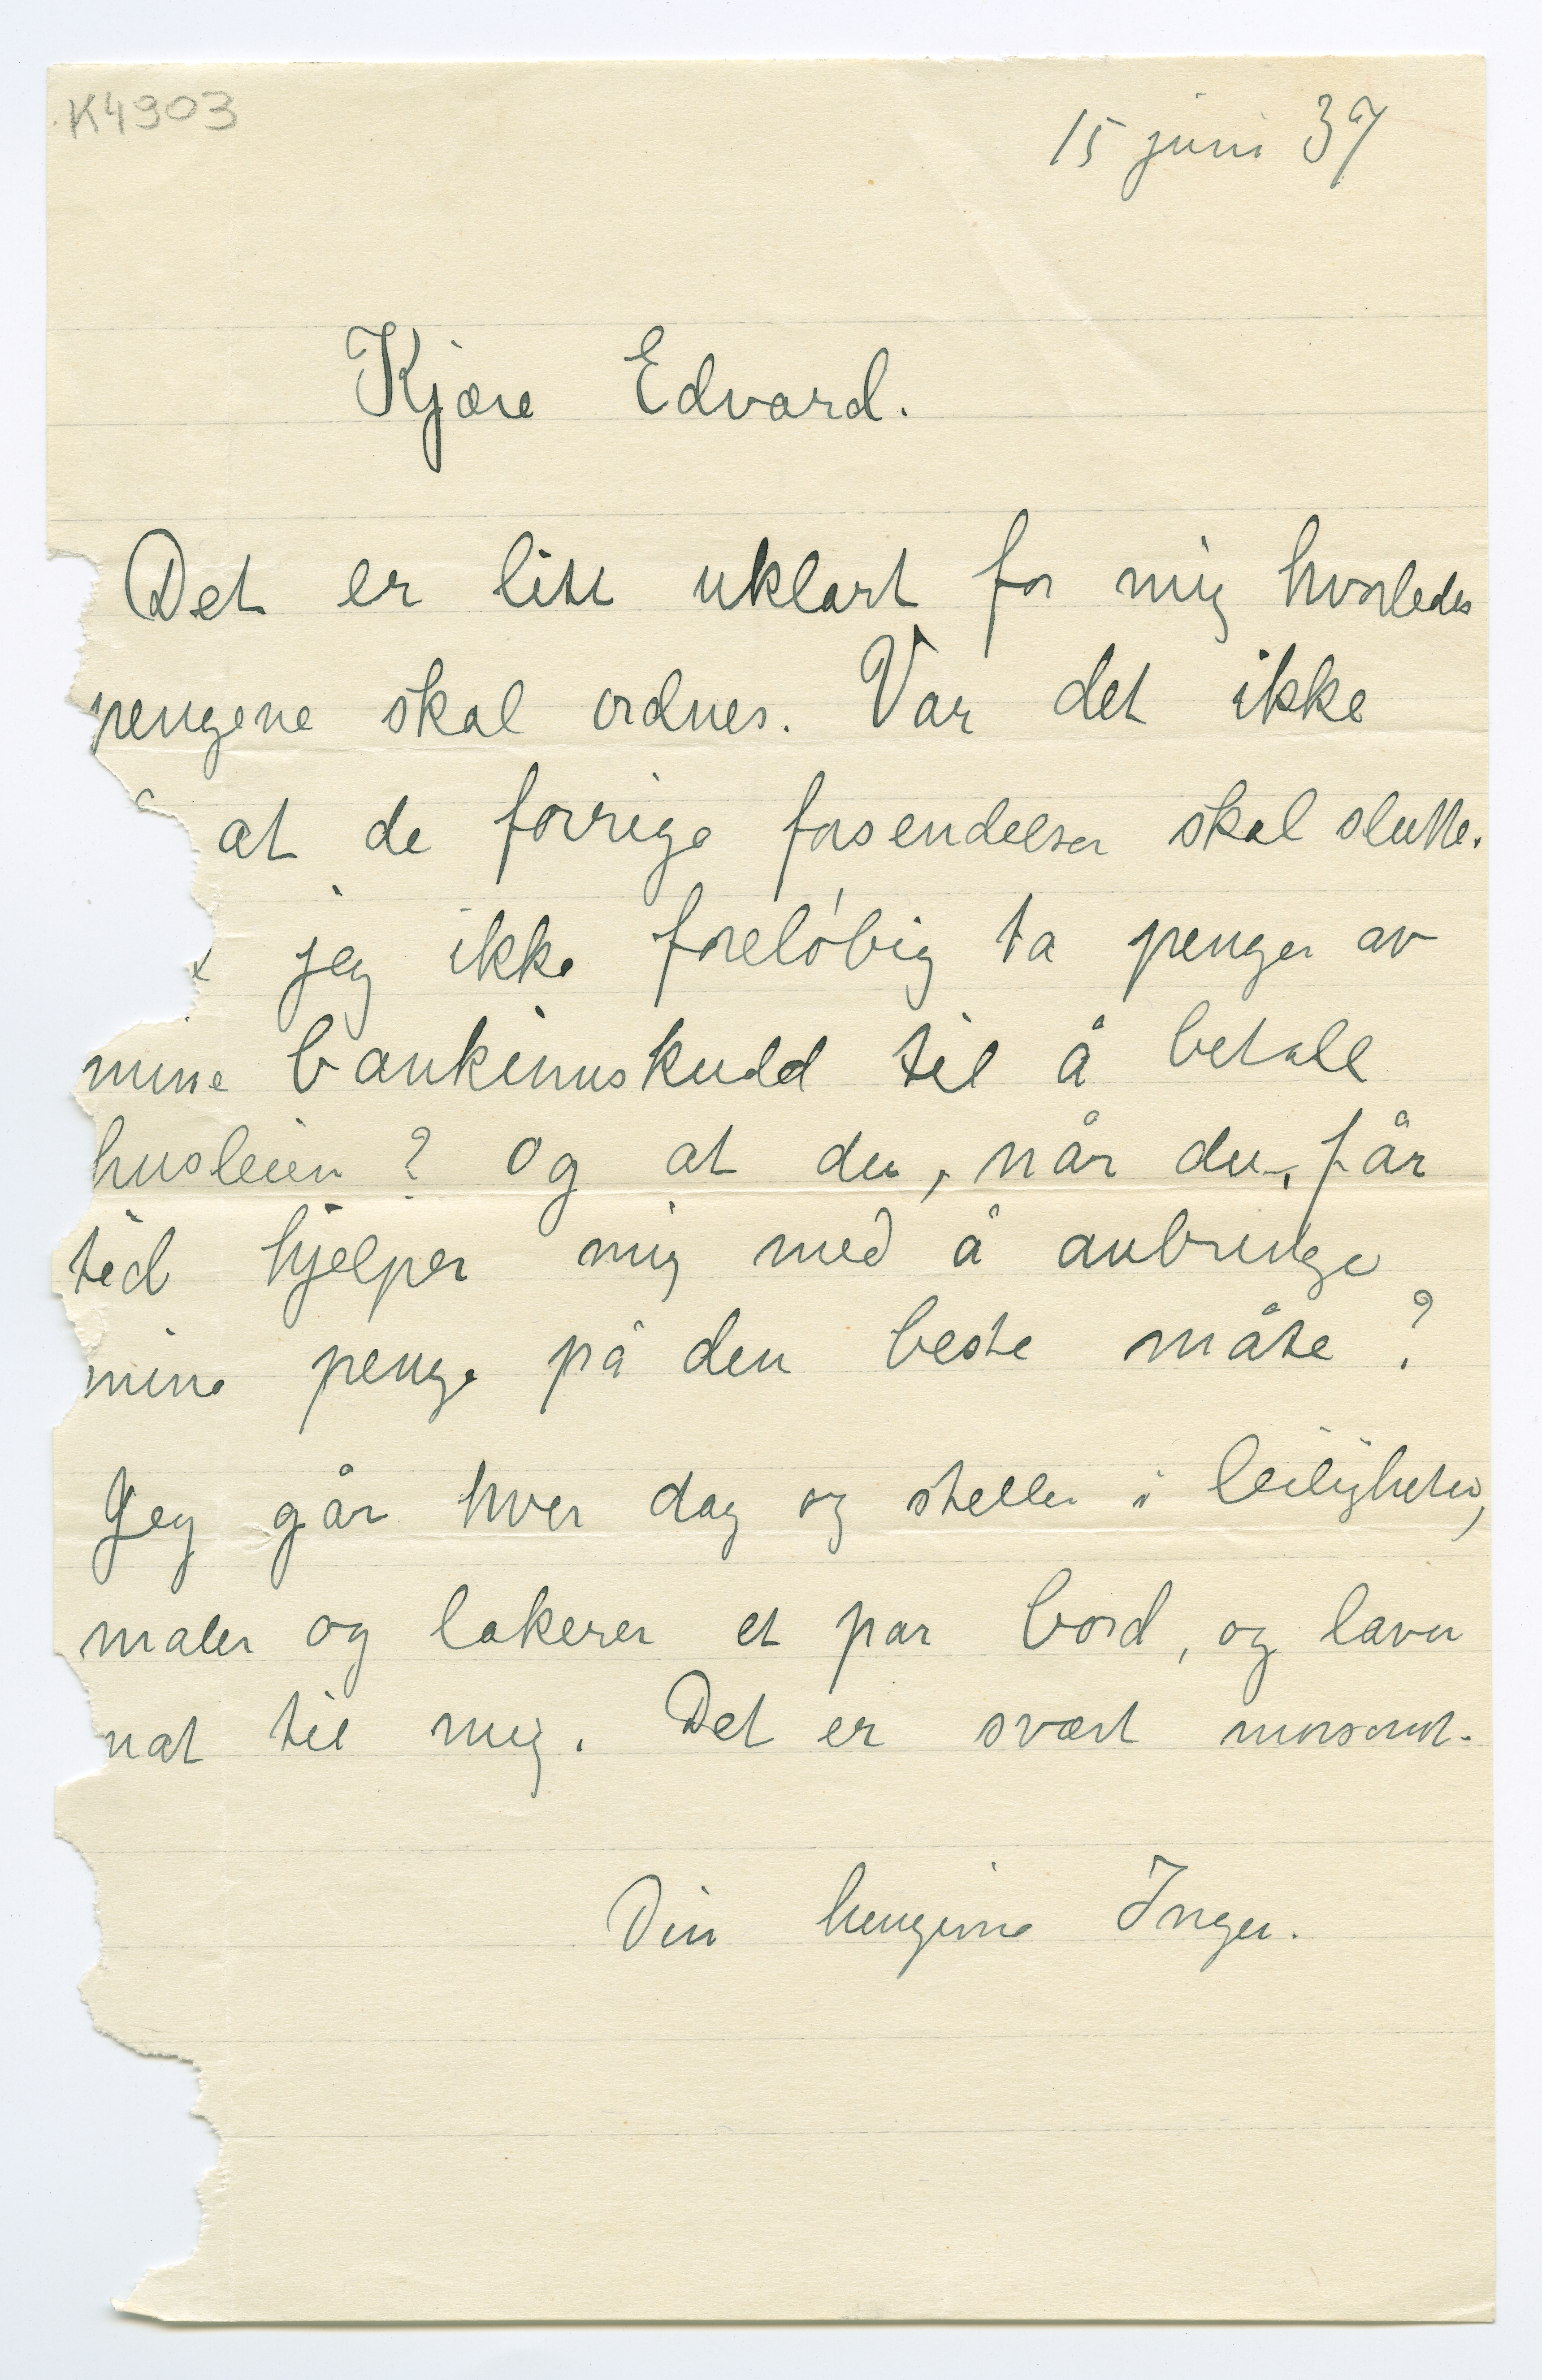 K4903
15 juni 37
Kjære Edvard.
Det er litt uklart for mig hvorledes
pengene skal ordnes. Var det ikke
at de forrige forsendelser skal slutte.
jeg ikke foreløbig ta penger av
mine bankinnskudd til å betale
husleien? Og at du, når du, får
tid hjelper mig med å anbringe
mine penge på den beste måte?
Jeg går hver dag og steller i leiligheten,
maler og lakerer et par bord, og laver
mat til mig. Det er svært morsomt.
Din hengivne Inger.